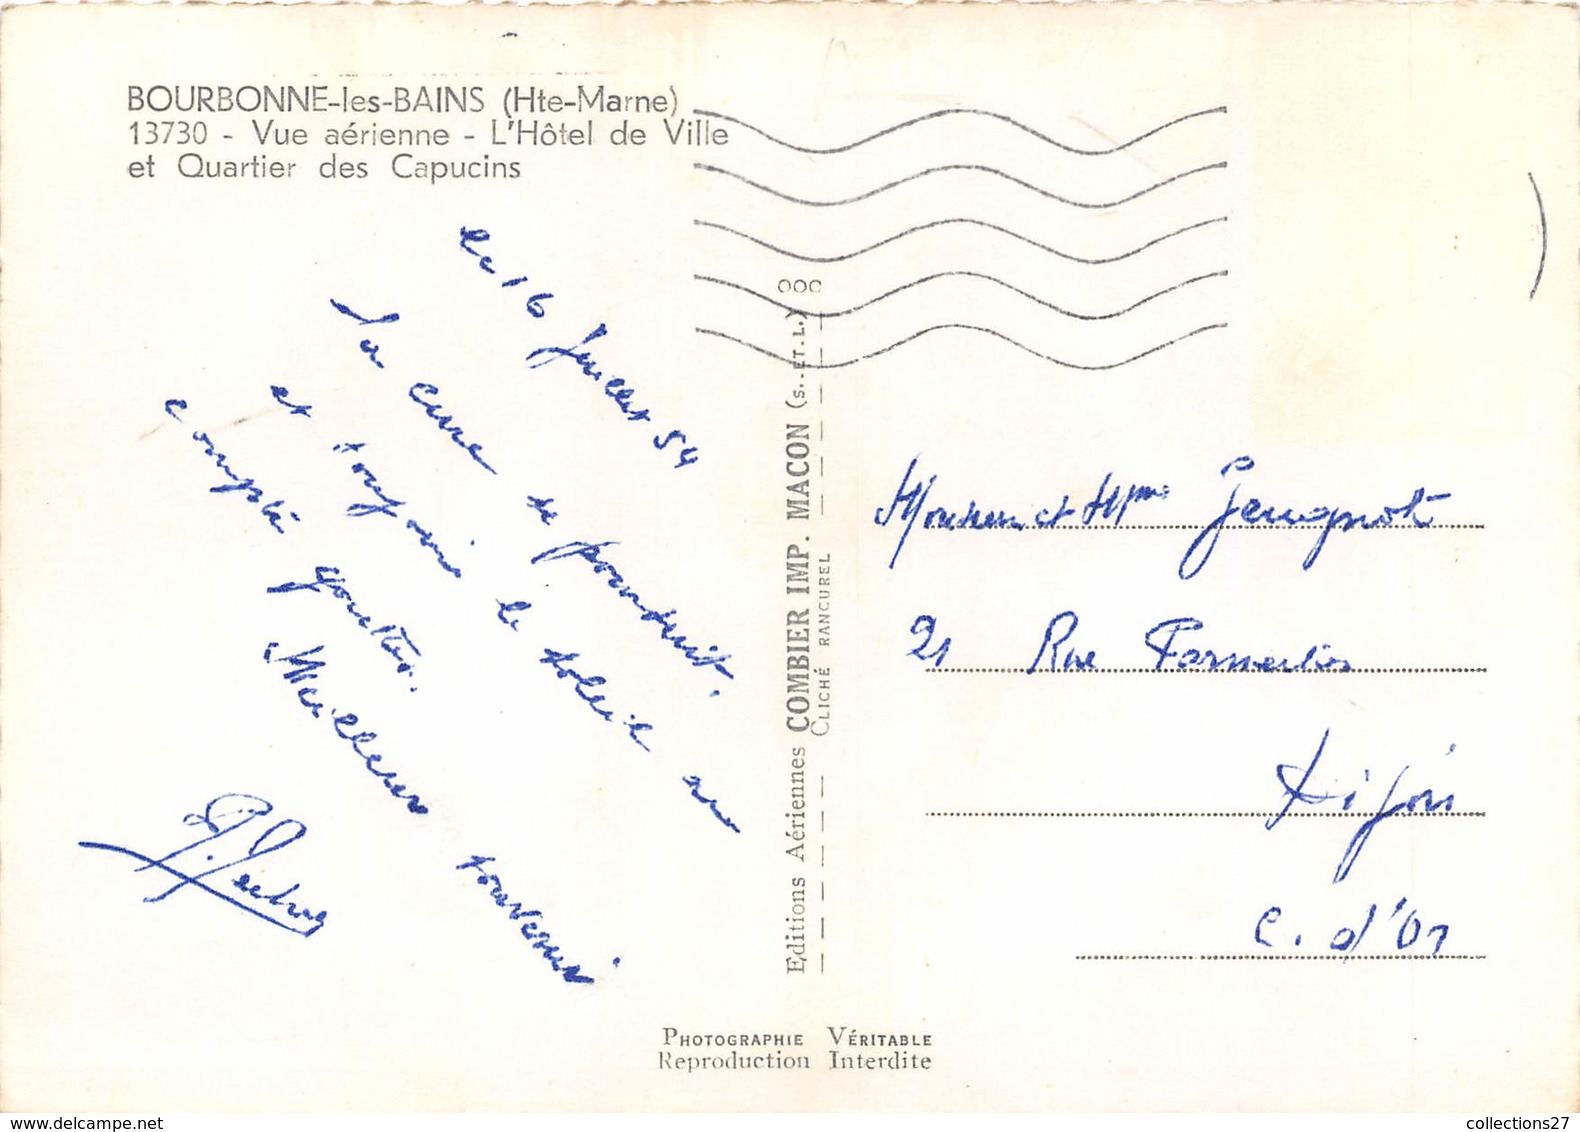 BOURBONNE-les-BAINS (Hte-Marne)
13730 - Vue aérienne - L'Hôtel de Ville
et Quartier des Capucins
le 16 Juillet 54
La cure se poursuit,
et toujours le soleil au
compte gouttes.
Meilleurs souvenirs
Editions Aériennes COMBIER IMP. MACON (S.-ET-L.) 000
CLICHÉ RANCUREL
Monsieur et Mme Jeugnot
21 Rue Parmentier
Dijon
C. d'Or
PHOTOGRAPHIE VÉRITABLE
Reproduction Interdite
www.delcampe.net
collections27